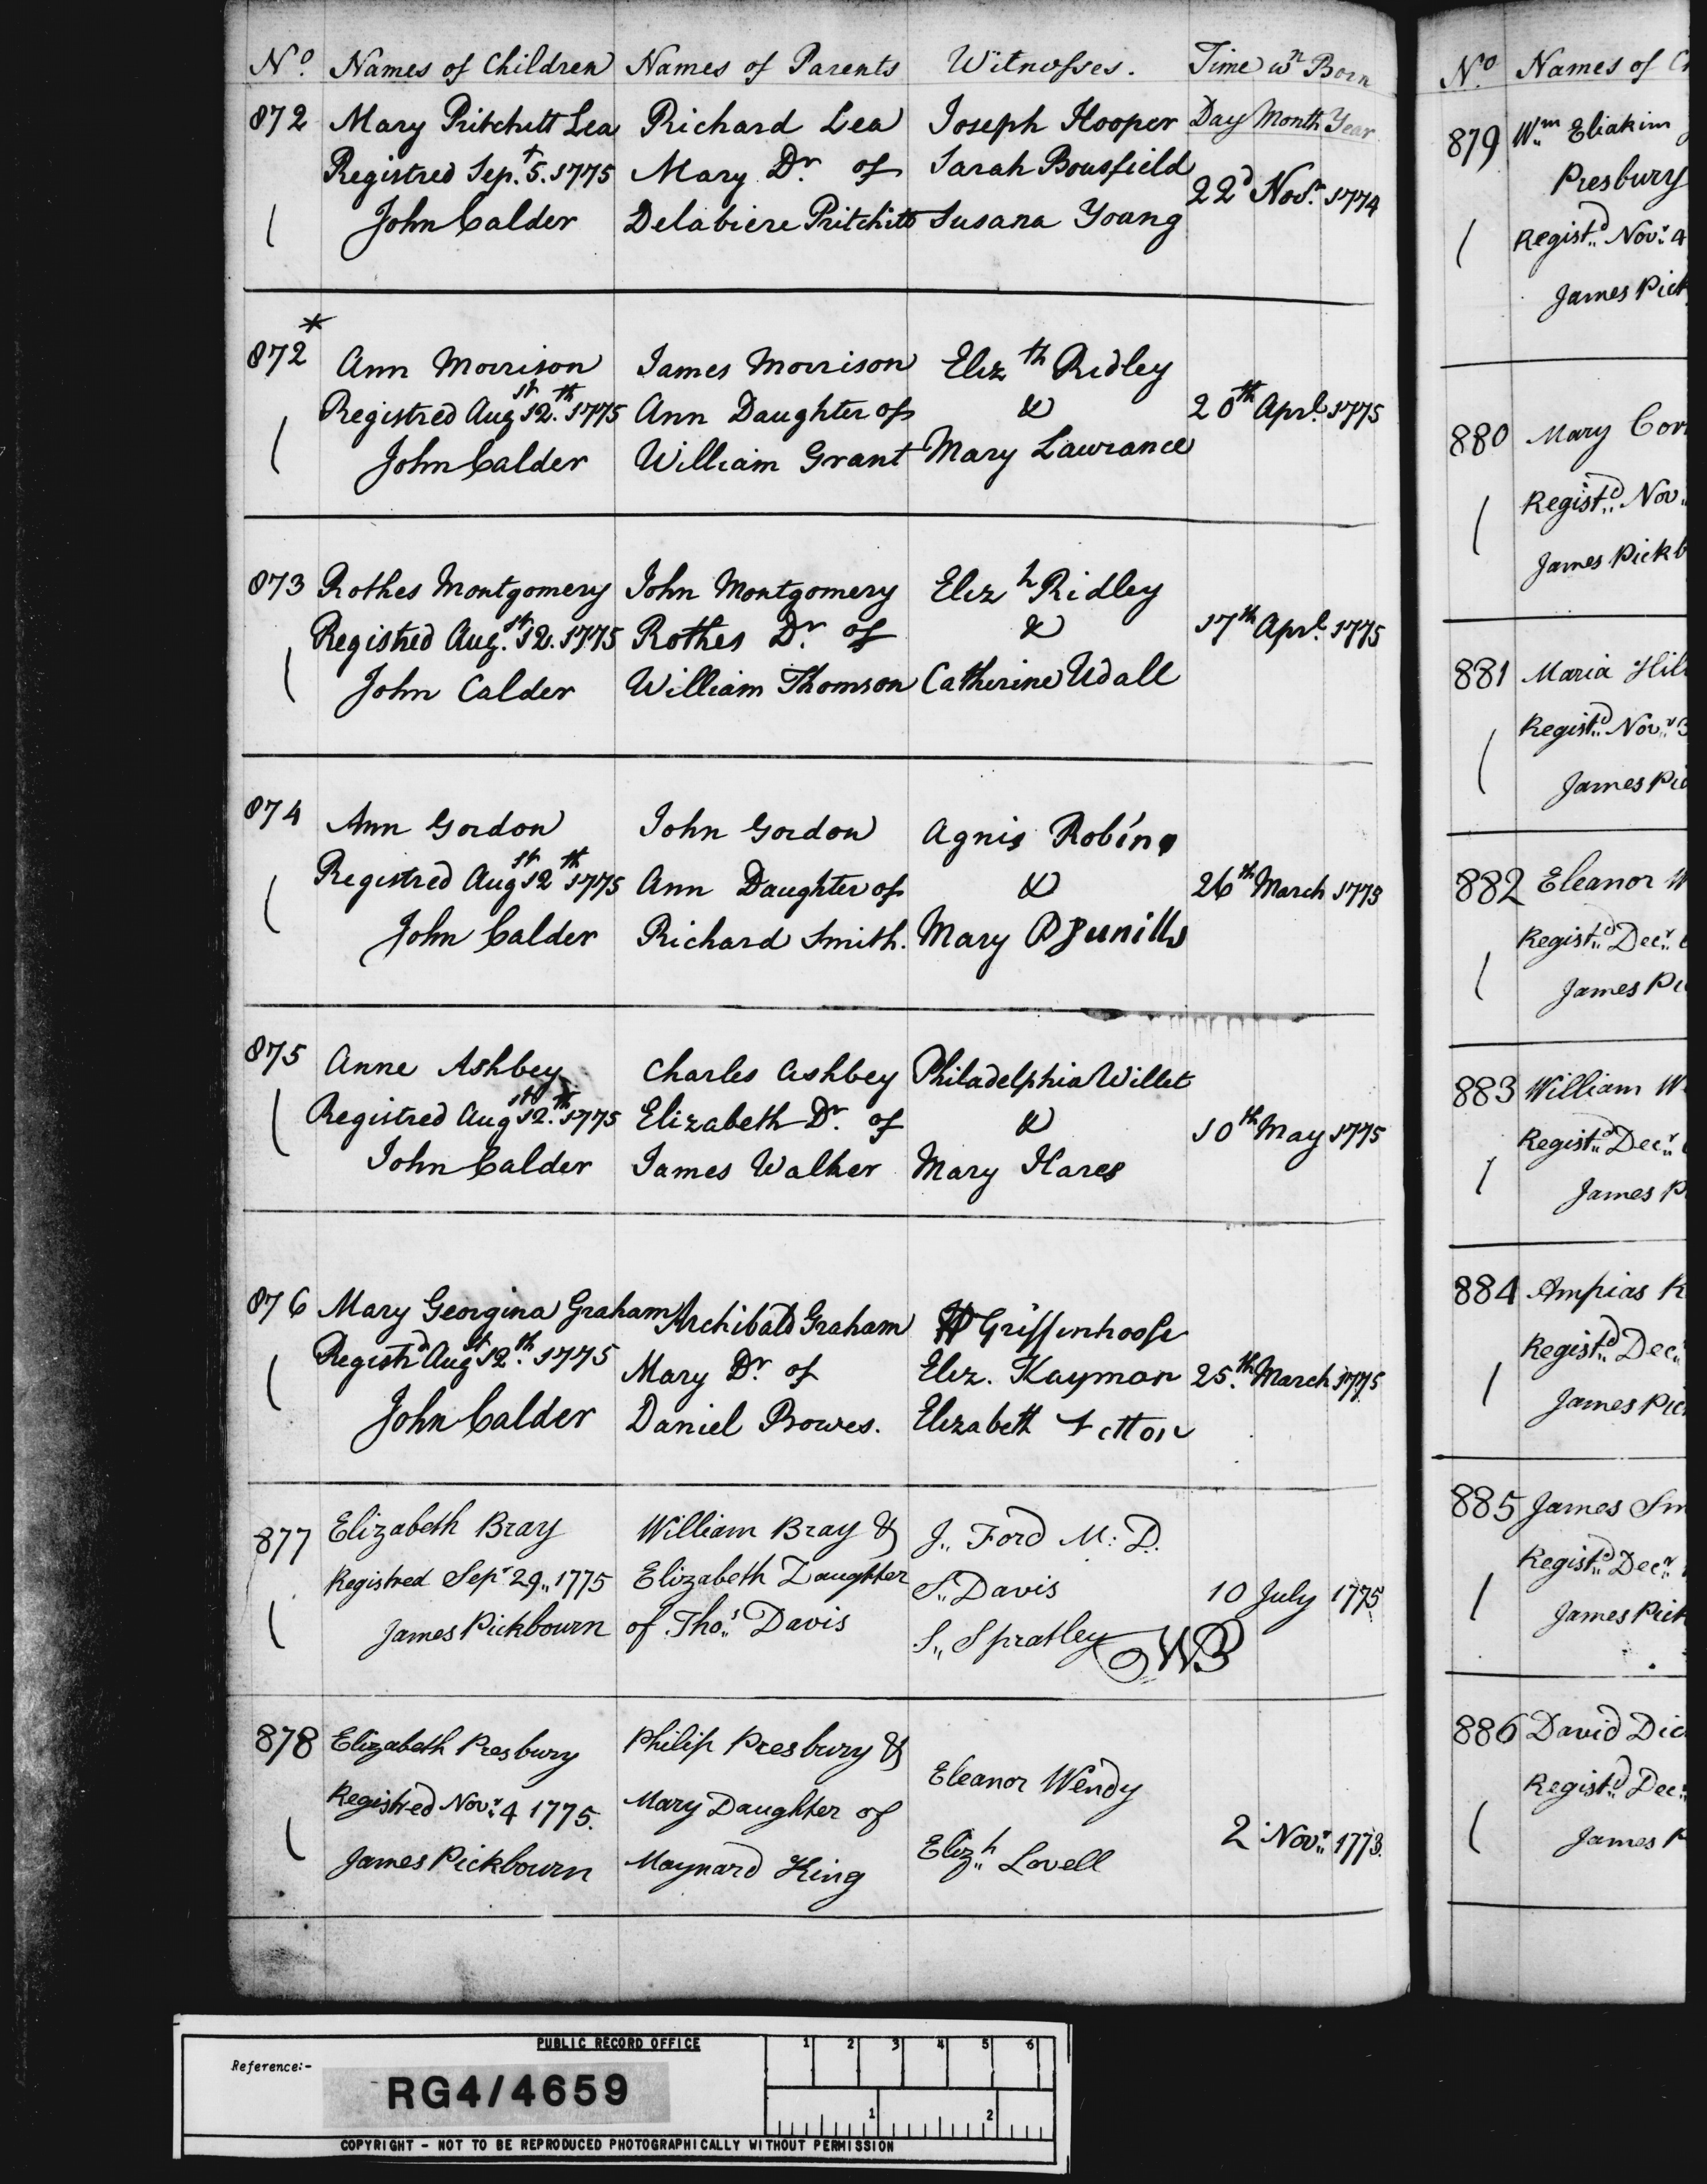 No. Names of Children Names of Parents Witnesses. Time wn Born
Day Month Year
872 Mary Pritchitt Lea Richard Lea Joseph Hooper
Registred Sept. 5. 1775 Mary Dr. of Sarah Bousfield 22d Novr. 1774
John Calder Delabiere Pritchitt Susana Young
872* Ann Morrison James Morrison Elizth Ridley
Registred Augst 12th. 1775 Ann Daughter of & 20th Aprl. 1775
John Calder William Grant Mary Lawrance
873 Rothes Montgomery John Montgomery Elizh Ridley
Registred Augst. 12. 1775 Rothes Dr. of & 17th Aprl. 1775
John Calder William Thomson Catherine Udall
874 Ann Gordon John Gordon Agnis Robins
Registred Augst 12th 1775 Ann Daughter of & 26th March 1775
John Calder Richard Smith. Mary
875 Anne Ashbey Charles Ashbey Philadelphia Willet
Registred Augst 12th. 1775 Elizabeth Dr. of & 10th May 1775
John Calder James Walker Mary Hares
876 Mary Georgina Graham Archibald Graham Griffinhoofe
Registrd Augst 12th. 1775 Mary Dr. of Eliz. Kayman 25th. March 1775
John Calder Daniel Prowes. Elizabeth
877 Elizabeth Bray William Bray & J. Ford M: D.
Registred Sepr 29, 1775 Elizabeth Daughter S. Davis 10 July 1775
James Pickbourn of Thos. Davis S. Spratley WB
878 Elizabeth Presbury Philip Presbury & Eleanor Wendy
Registred Novr. 4 1775. Mary Daughter of 2 Novr. 1773.
James Pickbourn Maynard King Elizh Lovell
No Names of
879 Wm Eliakim
Presbury
Registd. Novr. 4
James Pick
880 Mary Cor
Registd. Nov.
James Pickb
881 Maria Hil
Registd. Novr. 3
James Pic
882 Eleanor W
Registd. Decr.
James Pi
883 William W
Registd. Decr.
James P
884 Ampias K
Registd. Decr.
James Pic
885 James Sm
Registd. Decr.
James Pick
886 David Dic
Registd. Decr.
James P
PUBLIC RECORD OFFICE
1 2 3 4 5 6
Reference:-
RG4/4659
1 2
COPYRIGHT - NOT TO BE REPRODUCED PHOTOGRAPHICALLY WITHOUT PERMISSION